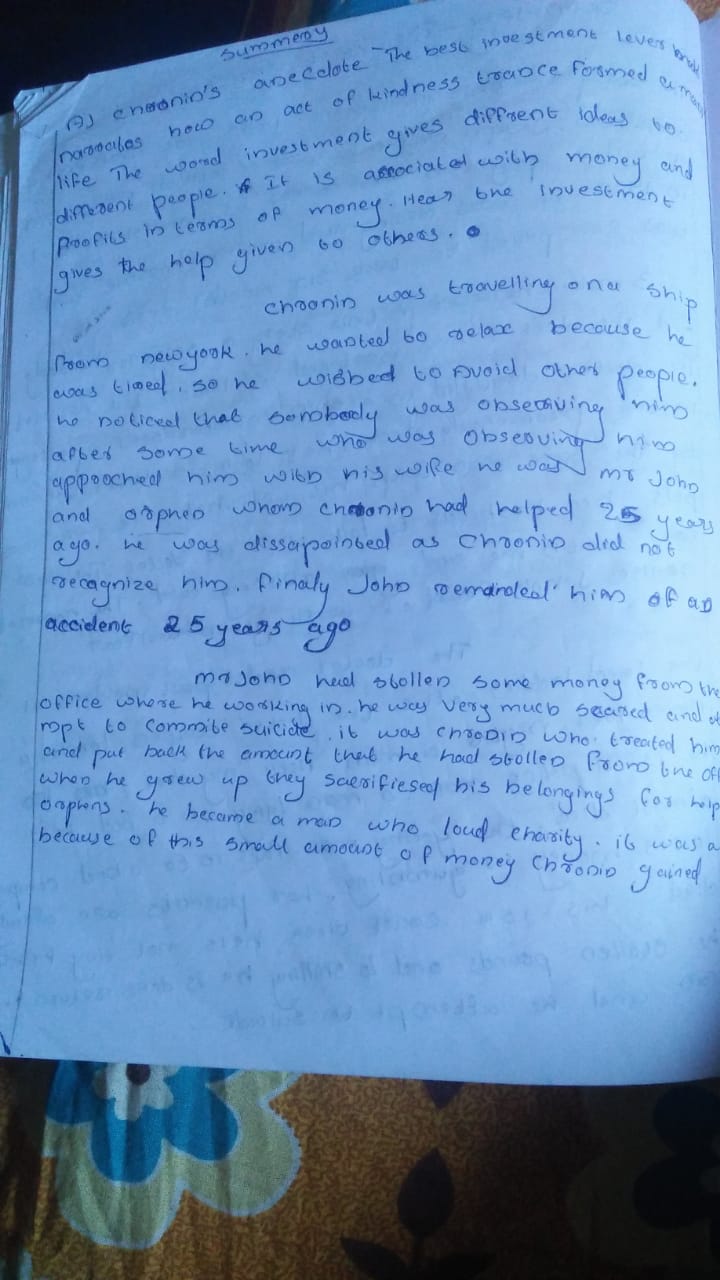 summeroy
AJ chroonin's anecdote "The best investment I ever
narrates how an act of kindness trance formed a man
life The word investment gives diffrent ideas to
different people. It is associated with money and
profits in terms of money. Hear the investment
gives the help given to others.
chronin was travelling on a ship
from newyork. he wanted to relax because he
was tired. so he wished to Avoid other people.
he noticed that sombody was obserrving him
after some time who was observing him
approched him with his wife he was mr John
and orphen whom chronin had helped 25 years
ago. he was dissapointed as Chronin did not
recagnize him. finaly John remainded him of an
accident 25 years ago
mr John had stollen some money from the
office where he working in. he was very much scared and at
mpt to Commite suicide. it was chronin who treated him
and put back the amount that he had stollen from the off
when he grew up they sacrifiesed his belongings for help
orphens. he became a man who loud charity. it was a
because of this small amount of money Chronin gained